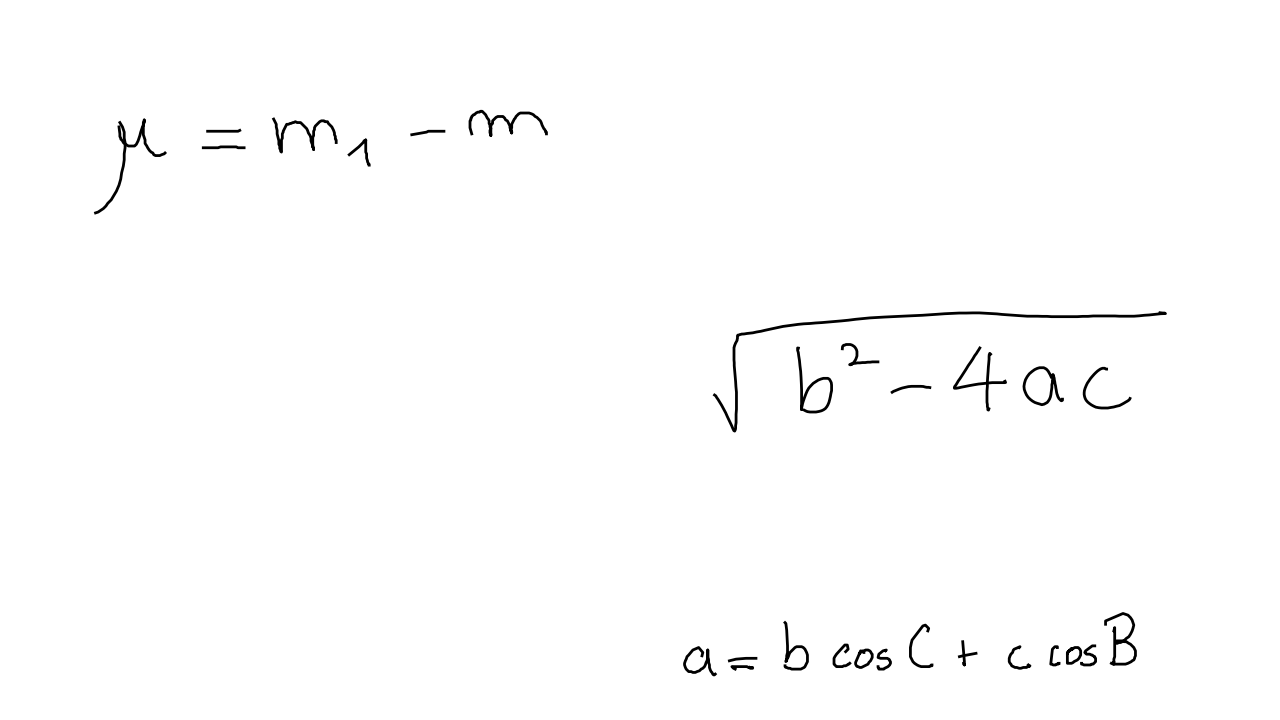 μ = m₁ - m
√(b² - 4ac)
a = b cos C + c cos B